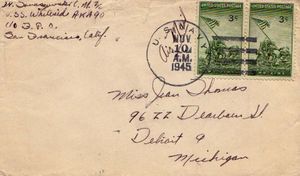 U.S.S. Whitfield AKA 90
% F.P.O.
San Francisco, Calif.
U.S. NAVY
NOV
10
A.M.
1945
UNITED STATES POSTAGE
3¢
UNITED STATES POSTAGE
3¢
Miss Jean Thomas
9622 Dearborn St
Detroit 9
Michigan